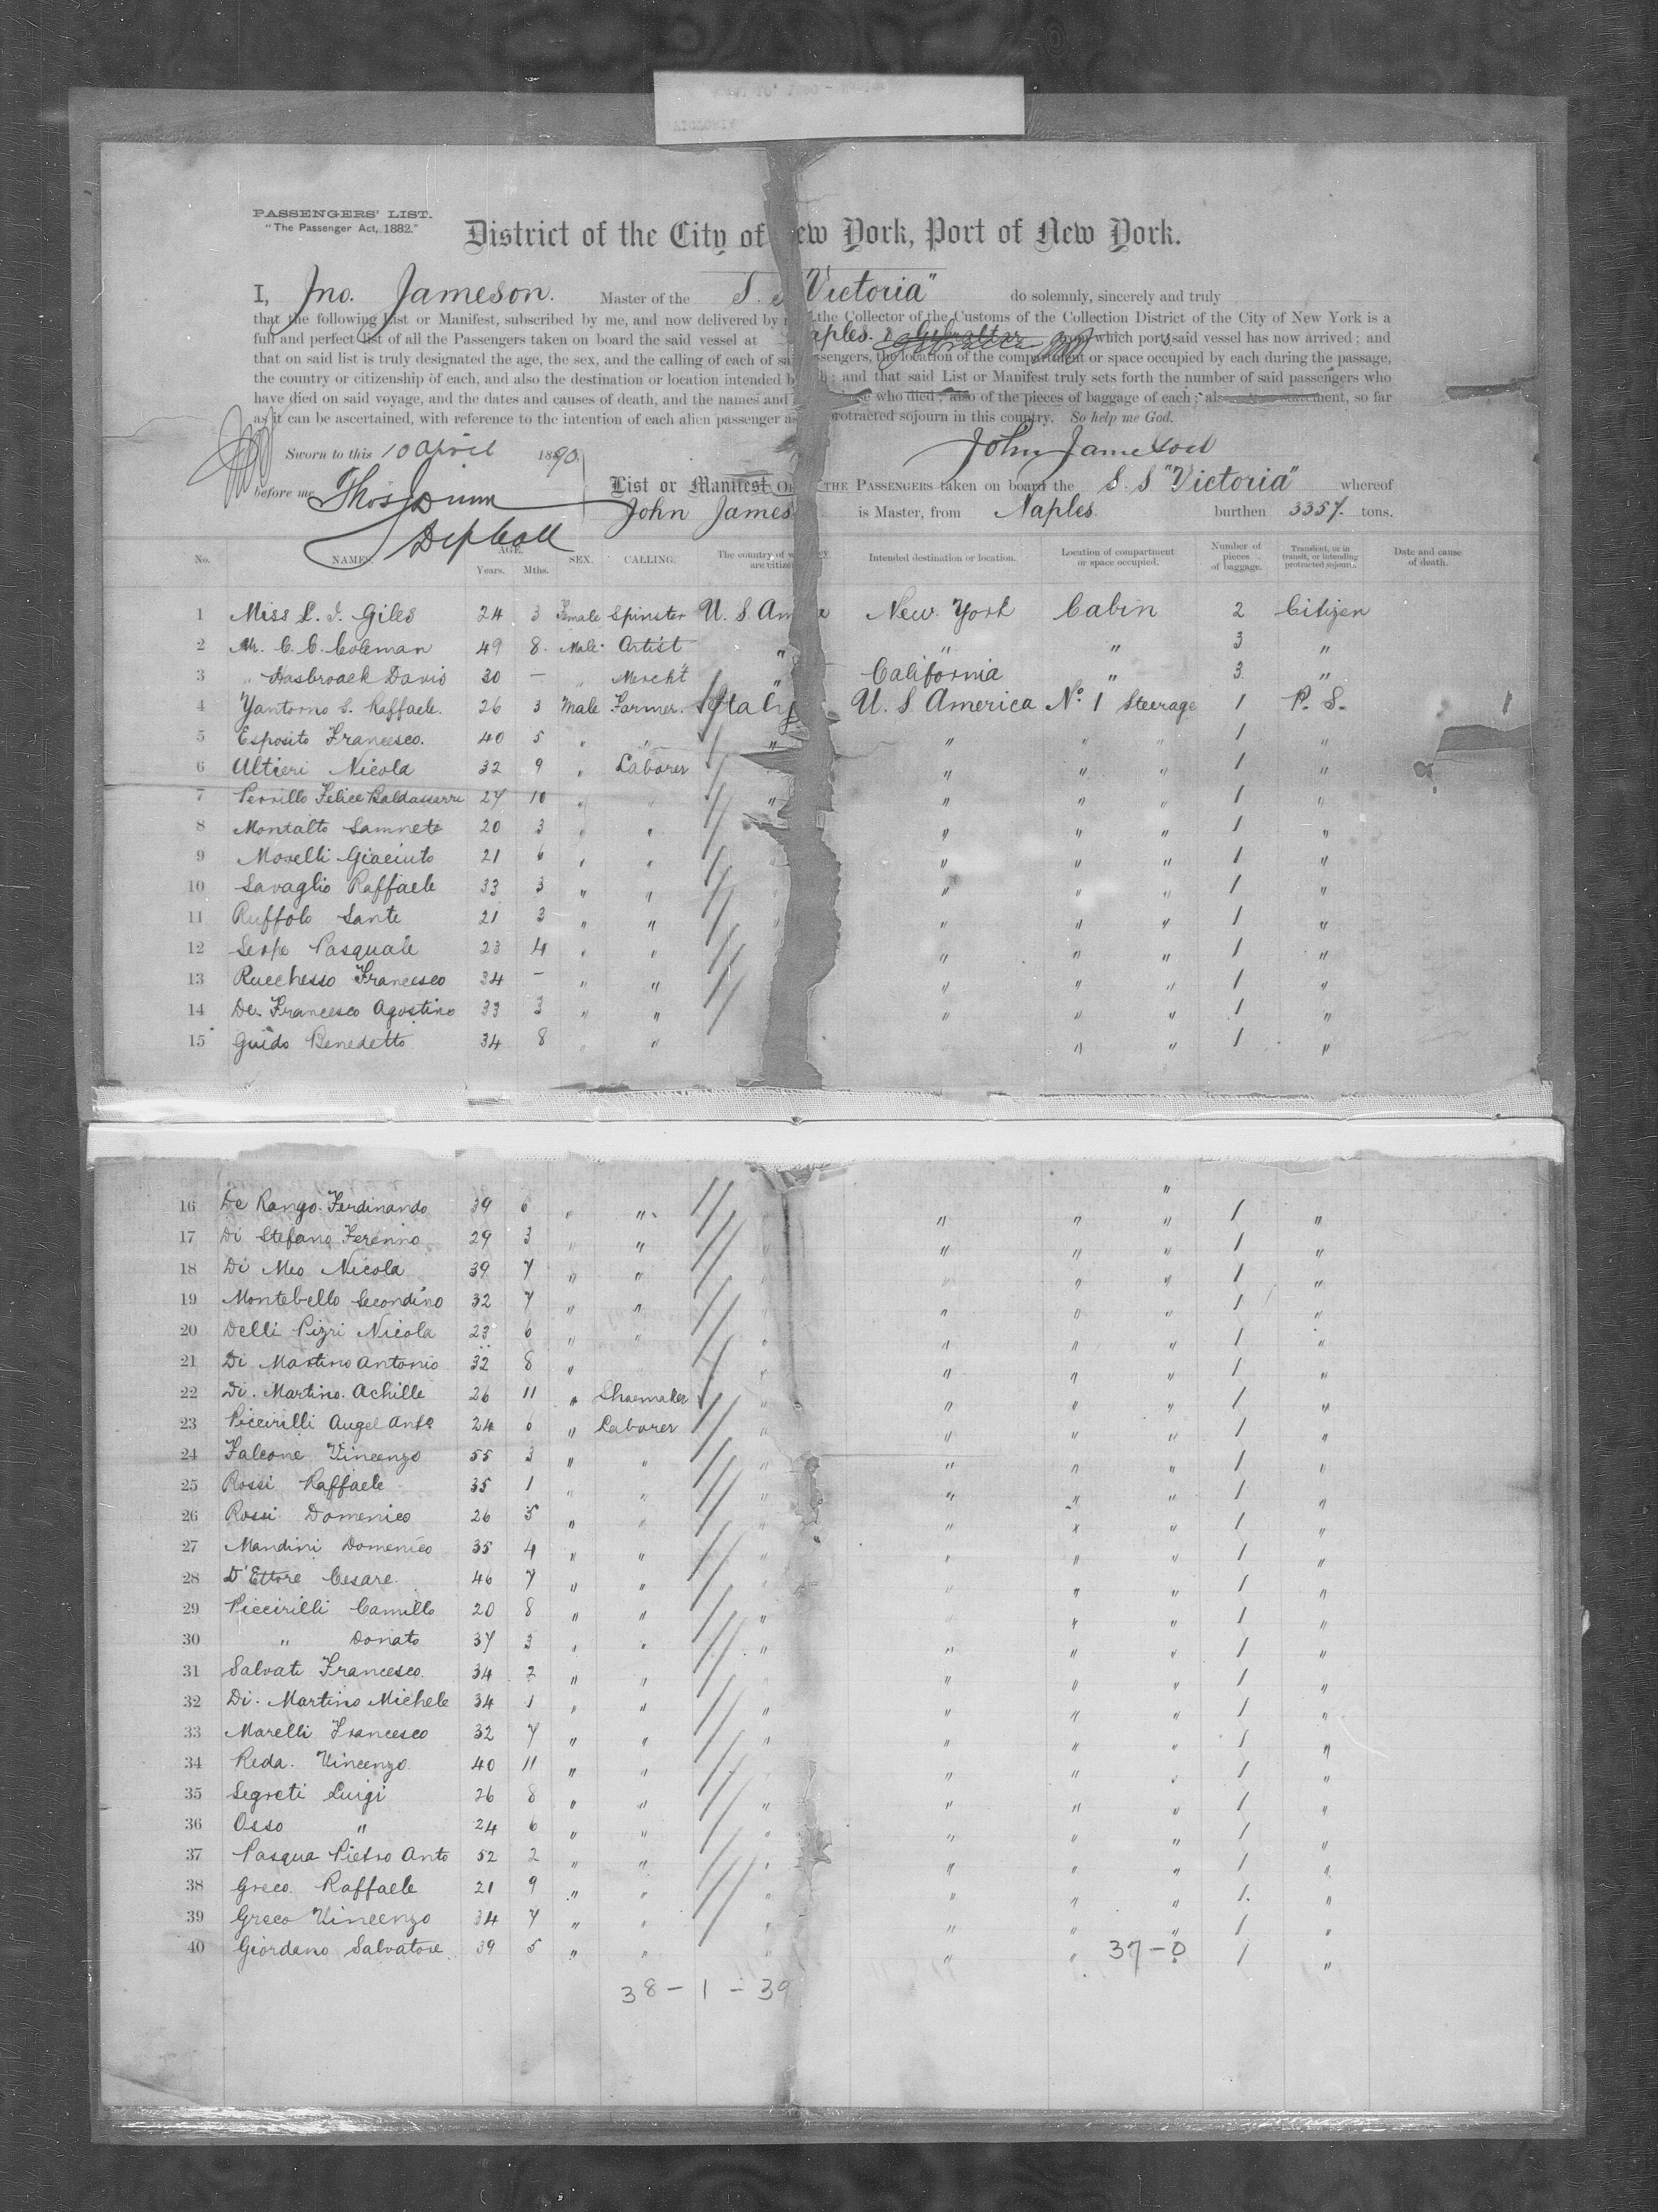 PASSENGERS' LIST.
"The Passenger Act, 1882."
District of the City of ew York, Port of New York.
I, Jno. Jameson. Master of the S. "Victoria" do solemnly, sincerely and truly
that the following List or Manifest, subscribed by me, and now delivered by the Collector of the Customs of the Collection District of the City of New York is a
full and perfect list of all the Passengers taken on board the said vessel at aples. from which port said vessel has now arrived; and
that on said list is truly designated the age, the sex, and the calling of each of sa ssengers, the location of the compartment or space occupied by each during the passage,
the country or citizenship of each, and also the destination or location intended b h; and that said List or Manifest truly sets forth the number of said passengers who
have died on said voyage, and the dates and causes of death, and the names and e who died; also of the pieces of baggage of each; als statement, so far
as it can be ascertained, with reference to the intention of each alien passenger as rotracted sojourn in this country. So help me God.
Sworn to this 10 April 1890. John Jameson
before me Thos Dunn List or Manifest OF THE PASSENGERS taken on board the S. S "Victoria" whereof
Dep Coll John James is Master, from Naples. burthen 3357. tons.
No. NAMES. AGE. Years. Mths. SEX. CALLING. The country of w y are citizen Intended destination or location. Location of compartment or space occupied. Number of pieces of baggage. Transient, or in transit, or intending protracted sojourn. Date and cause of death.
1 Miss L. I. Giles 24 3 Female Spinster U. S. Am a New York Cabin 2 Citizen
2 Mr. C. C. Coleman 49 8. Male Artist " " " 3 "
3 " Hasbroack Davis 30 – " Mercht " California " 3 "
4 Yantorno S. Raffaele. 26 3 Male Farmer. Italy U. S. America No. 1 Steerage 1 P. S. 1
5 Esposito Francesco. 40 5 " " " " " " 1 "
6 Altieri Nicola 32 9 " Laborer " " " 1 "
7 Perrillo Felice Baldassarre 27 10 " " " " " " 1 "
8 Montalto Samnete 20 3 " " " " " 1 "
9 Morelli Giacinto 21 6 " " " " " 1 "
10 Savaglio Raffaele 33 3 " " " " " 1 "
11 Ruffolo Sante 21 3 " " " " " 1 "
12 Serpe Pasquale 23 4 " " " " " 1 "
13 Rucchesso Francesco 34 – " " " " " 1 "
14 De. Francesco Agostino 33 3 " " " " " 1 "
15 Guido Benedetto 34 8 " " " " 1 "
16 De Rango. Ferdinando 39 6 " " " " " 1 "
17 Di Stefano Ferenno 29 3 " " " " " " 1 "
18 Di Meo Nicola 39 7 " " " " " 1 "
19 Montebello Secondino 32 7 " " " " " 1 "
20 Delli Pizri Nicola 23 6 " " " " " " 1 "
21 Di Martino Antonio 32 8 " " " " " 1 "
22 Di. Martino. Achille 26 11 " Shoemaker " " " " 1 "
23 Piccirilli Angel Anto 24 6 " Laborer " " " " 1 "
24 Falcone Vincenzo 55 3 " " " " " " 1 "
25 Rossi Raffaele 35 1 " " " " " " 1 "
26 Rossi Domenico 26 5 " " " " " " 1 "
27 Mandini Domenico 35 4 " " " " " 1 "
28 D'Ettore Cesare. 46 7 " " " " 1 "
29 Piccirilli Camillo 20 8 " " " " " 1 "
30 " Donato 37 3 " " " " " " 1 "
31 Salvati Francesco. 34 2 " " " " " 1 "
32 Di. Martino Michele 34 1 " " " " " " 1 "
33 Marelli Francesco 32 7 " " " " " " 1 "
34 Reda. Vincenzo 40 11 " " " " " 1 "
35 Segreti Luigi 26 8 " " " " " " 1 "
36 Osso " 24 6 " " " " " " 1 "
37 Pasqua Pietro Anto 52 2 " " " " " " 1 "
38 Greco. Raffaele 21 9 " " " " " " 1. "
39 Greco Vincenzo 34 7 " " " " " " 1 "
40 Giordano Salvatore. 39 5 " " " " " 37 – 0 1 "
38 – 1 – 39